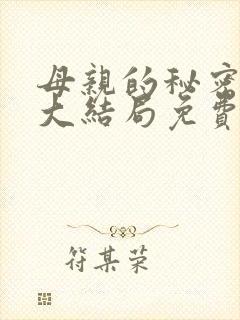 母親的秘密
大結局免費
符某荣